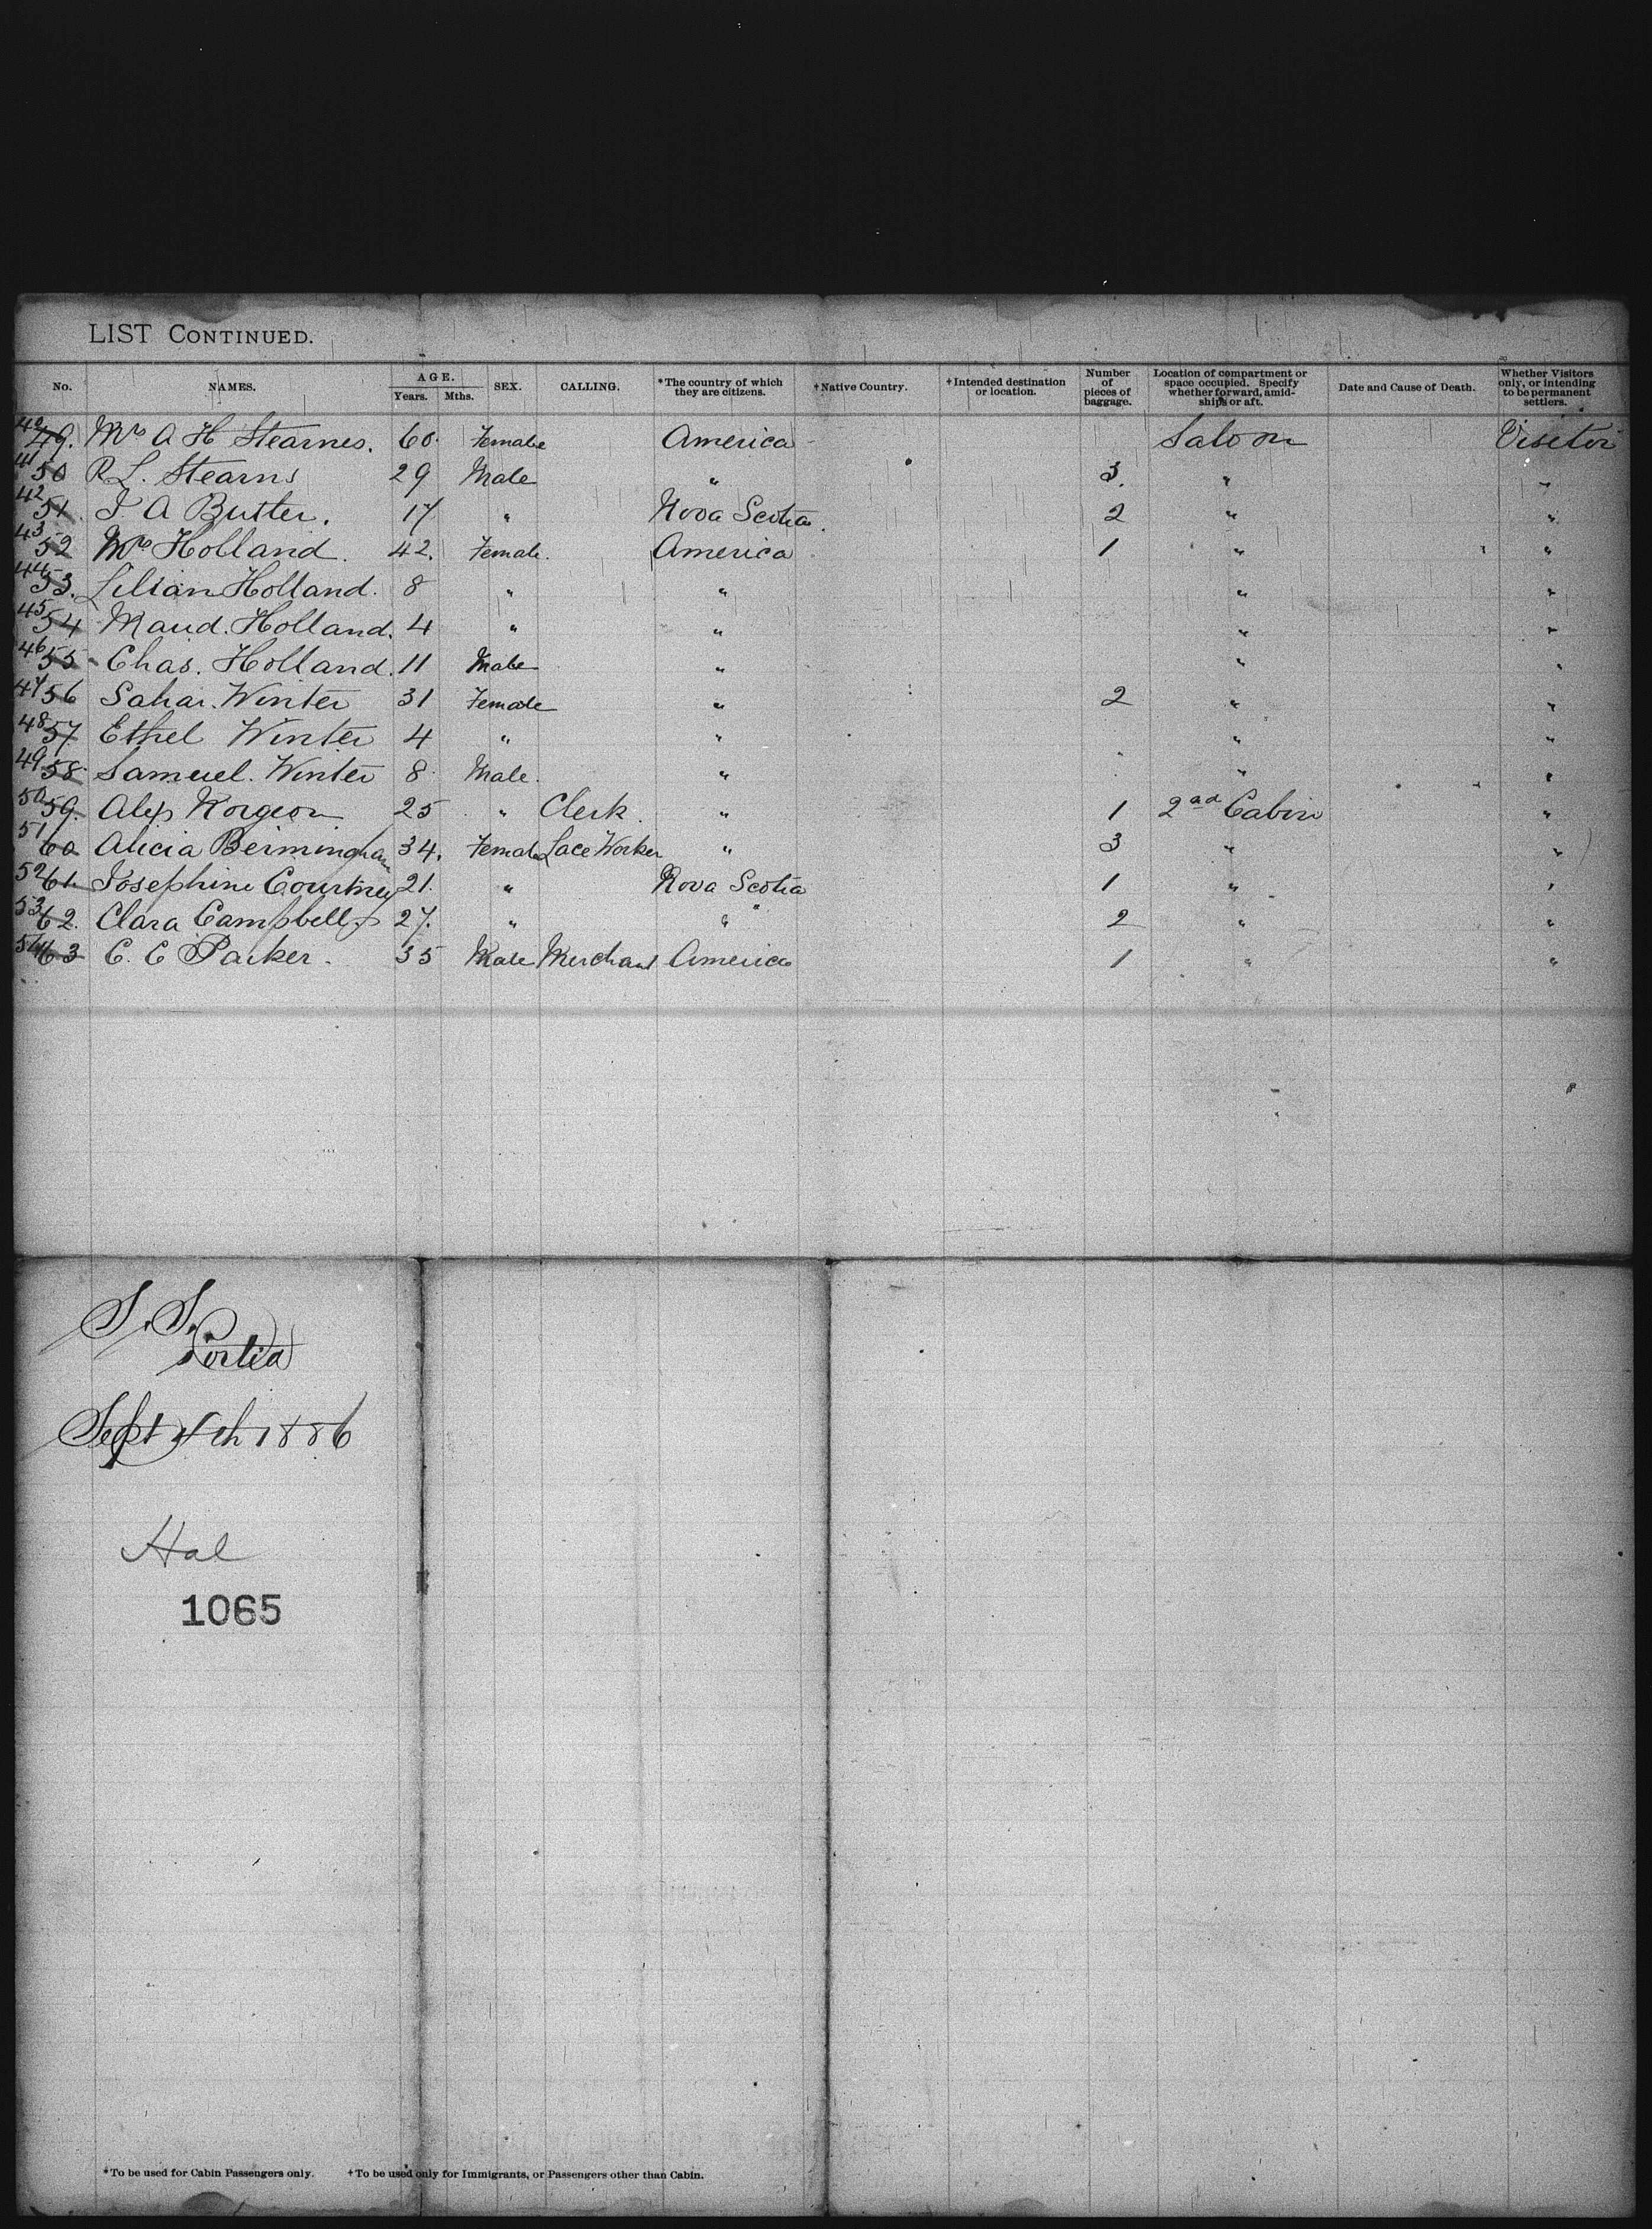 LIST CONTINUED.
No. NAMES. AGE. Years. Mths. SEX. CALLING. *The country of which they are citizens. †Native Country. †Intended destination or location. Number of pieces of baggage. Location of compartment or space occupied. Specify whether forward, amidships or aft. Date and Cause of Death. Whether Visitors only, or intending to be permanent settlers.
40 49. Mrs A H Stearnes. 60. Female America Saloon Visitor
41 50 R L. Stearns 29 Male " 3. " "
42 51. J A Butler. 17 " Nova Scotia. 2 " "
43 52 Mrs Holland. 42. Female. America 1 " "
44 53. Lilian Holland. 8 " " " "
45 54 Maud. Holland. 4 " " " "
46 55 Chas. Holland. 11 Male " " "
47 56 Sahar. Winter 31 Female " 2 " "
48 57 Ethel Winter 4 " " " "
49 58 Samuel. Winter 8 Male. " " "
50 59. Alex 25 " Clerk. " 1 2nd Cabin "
51 60 Alicia Bermingham 34. Female Lace Worker " 3 " "
52 61. Josephine Courtney 21. " Nova Scotia 1 " "
53 62. Clara Campbell 27. " " " 2 " "
54 63 C. E Parker. 35 Male Merchant America 1 " "
S.S.
Portia
Sept 4th 1886
Hal
1065
*To be used for Cabin Passengers only. †To be used only for Immigrants, or Passengers other than Cabin.